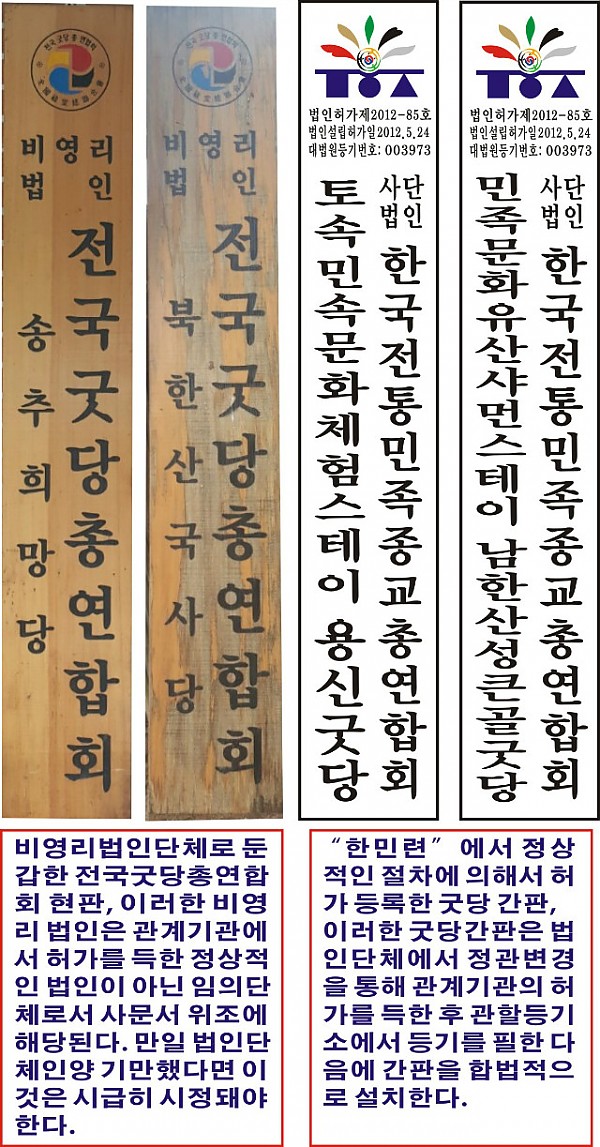 전국 굿당 총 연합회
비영리
법인
전국굿당총연합회
송추희망당
비영리
법인
전국굿당총연합회
북한산국사당
법인허가제2012-85호
법인설립허가일2012.5.24
대법원등기번호: 003973
사단
법인
한국전통민족종교총연합회
토속민속문화체험스테이 용신굿당
법인허가제2012-85호
법인설립허가일2012.5.24
대법원등기번호: 003973
사단
법인
한국전통민족종교총연합회
민족문화유산샤먼스테이 남한산성큰골굿당
비영리법인단체로 둔
갑한 전국굿당총연합
회 현판, 이러한 비영
리 법인은 관계기관에
서 허가를 득한 정상적
인 법인이 아닌 임의단
체로서 사문서 위조에
해당된다. 만일 법인단
체인양 기만했다면 이
것은 시급히 시정돼야
한다.
“한민련” 에서 정상
적인 절차에 의해서 허
가 등록한 굿당 간판,
이러한 굿당간판은 법
인단체에서 정관변경
을 통해 관계기관의 허
가를 득한 후 관할등기
소에서 등기를 필한 다
음에 간판을 합법적으
로 설치한다.